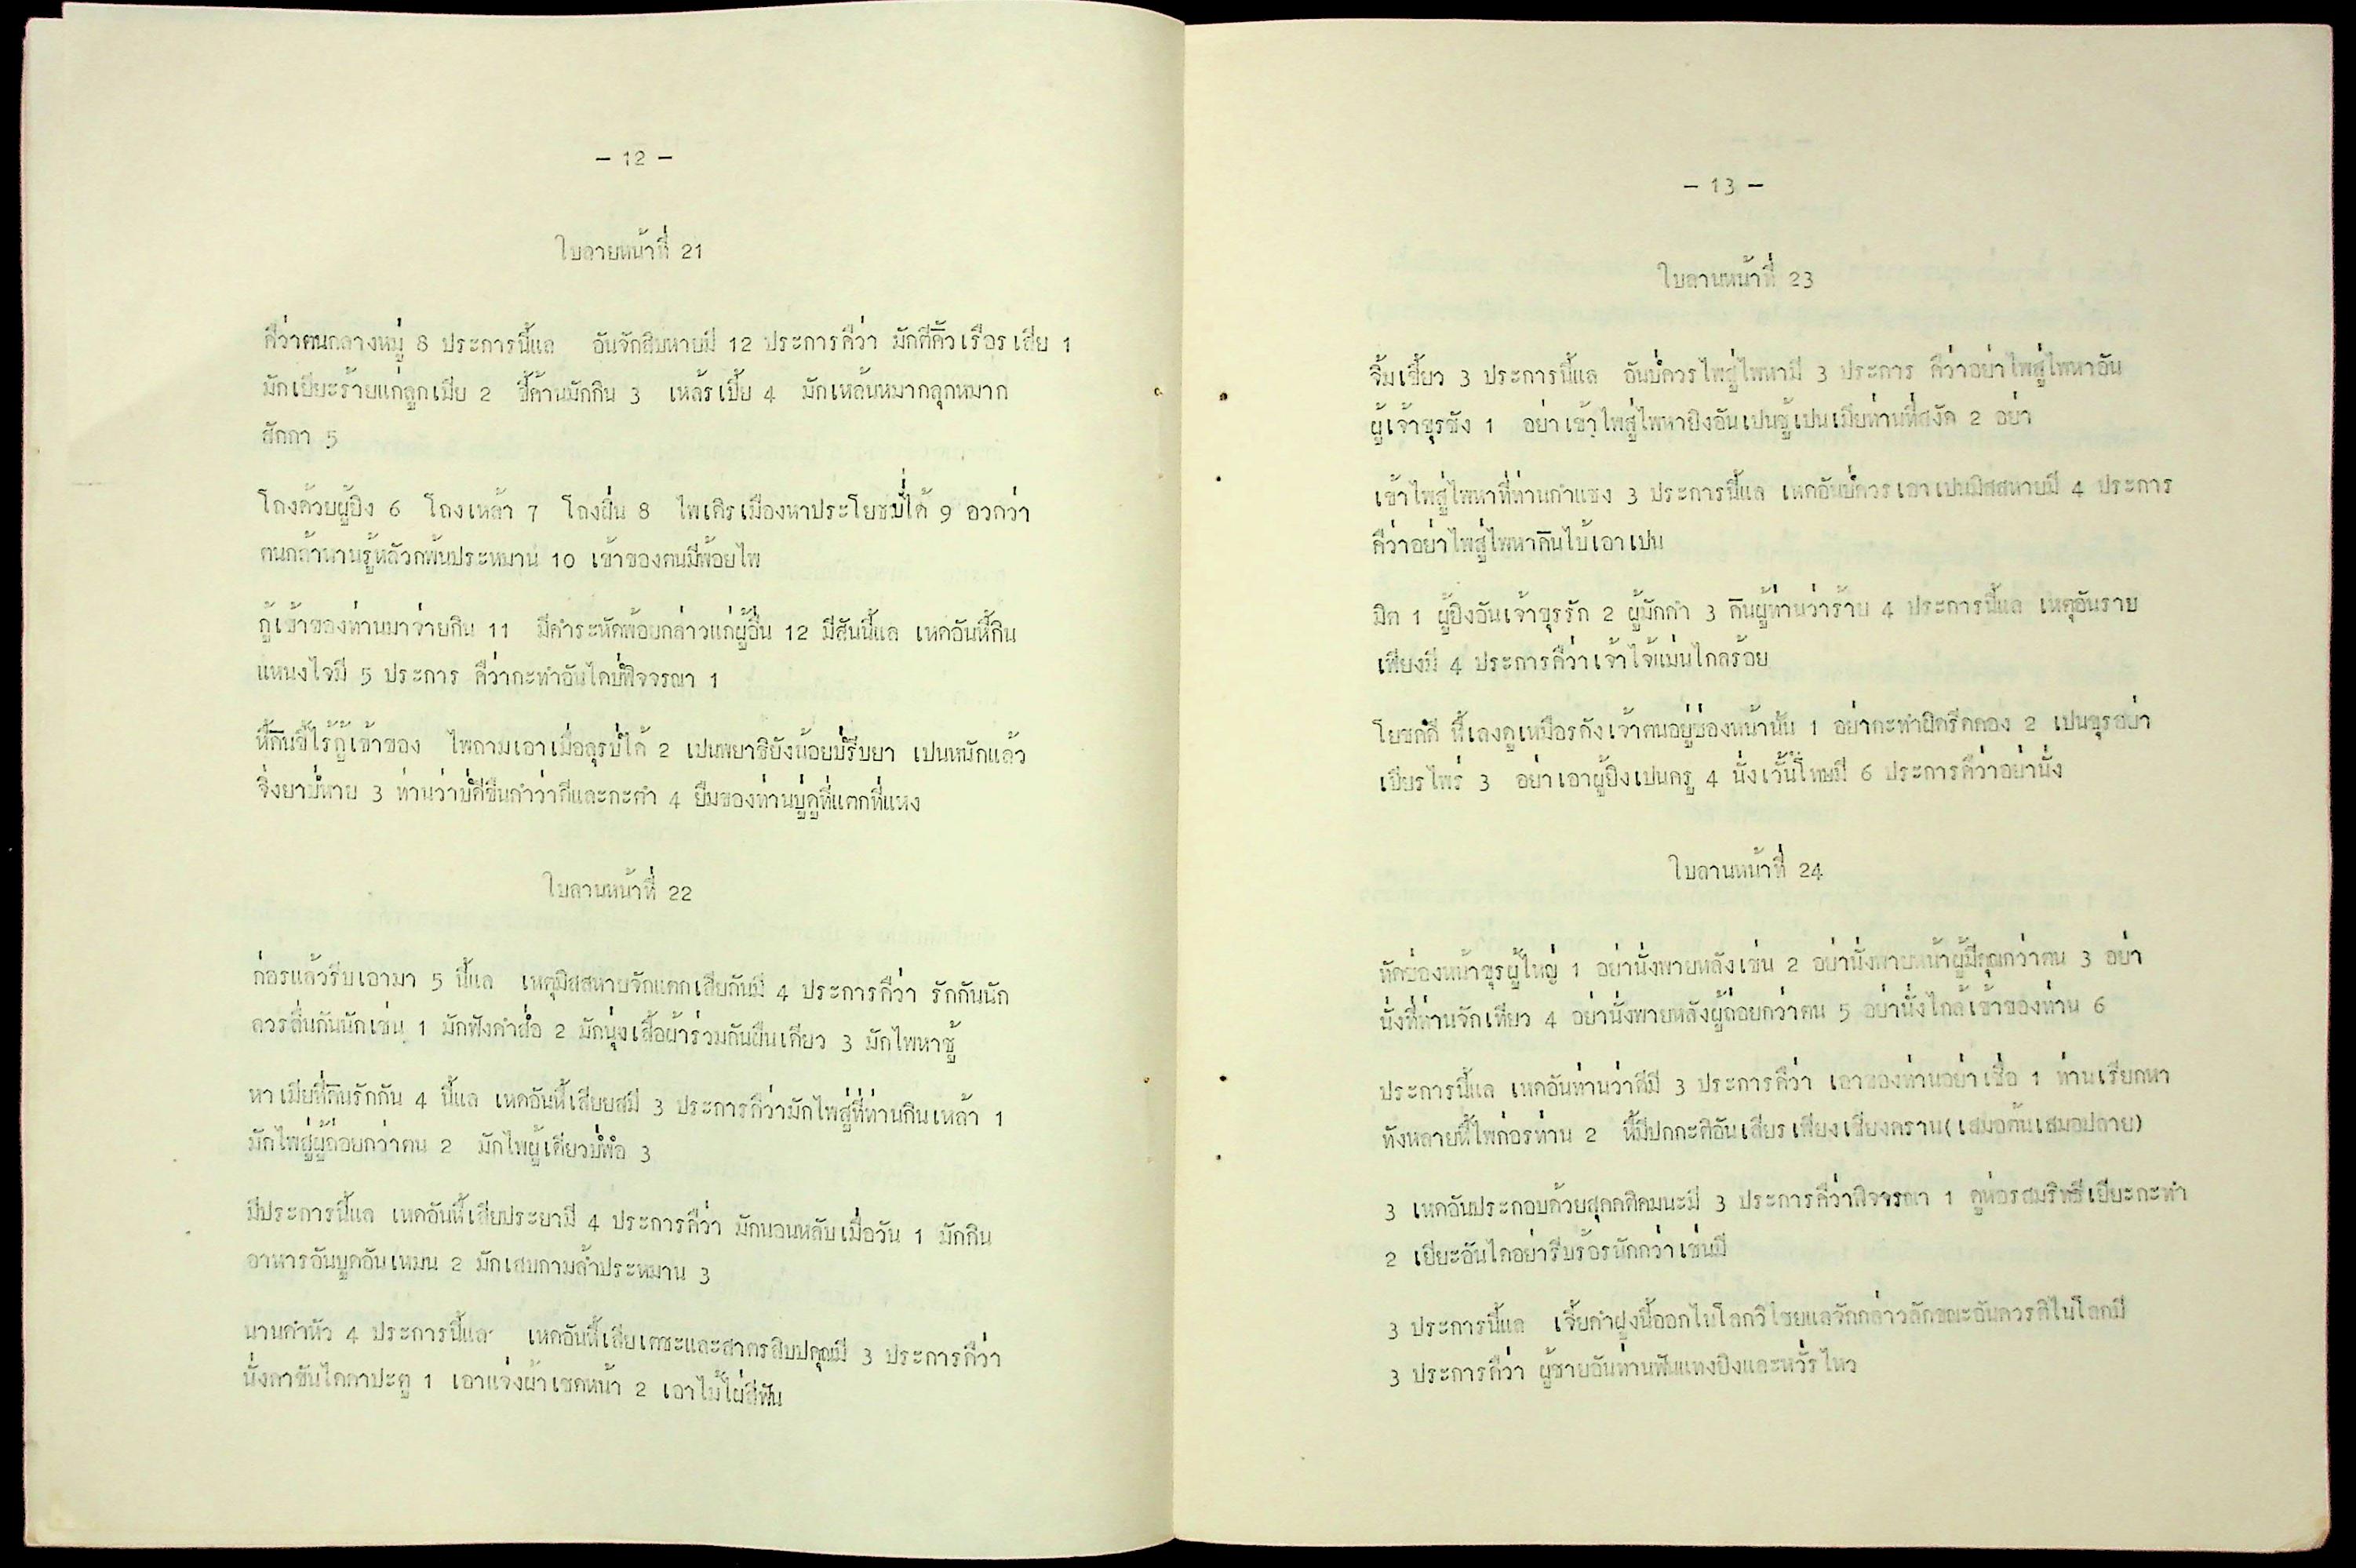 - 12 -
ใบลายหน้าที่ 21
คืว่าตนกลางหมู่ 8 ประการนี้แล อันจักสิบหายมี 12 ประการคืว่า มักตีคิ้วเรือรเสีย 1
มักเยียะร้ายแก่ลูกเมีย 2 ขี้ค้านมักกิน 3 เหล้รเบี้ย 4 มักเหล้นหมากลุกหมาก
สักกา 5
โถงด้วยผู้ยิง 6 โถงเหล้า 7 โถงฝิ่น 8 ไพเคิรเมืองหาประโยชบ่ไ่ด้ 9 อวกว่า
ตนกล้าหานรู้หลัวกพ้นประหมาน 10 เข้าของตนมีพ้อยไพ
กู้เข้าของท่านมาจ่ายกิน 11 มีคำระหัดพ้อยกล่าวแก่ผู้อื่น 12 มีสันนี้แล เหดอันหื้กิน
แหนงไจมี 5 ประการ คืว่ากะทำอันไดบ่พิจจรณา 1
หื้กินขี้ไร้กู้เข้าของ ไพถามเอาเมื่อลุรบ่ไ้ด้ 2 เปนพยาธิยังน้อยบ่รีบยา เปนหนักแล้ว
จิ่งยาบ่หาย 3 ท่านว่าบ่ดีขืนกำว่าดีและกะตำ 4 ยืมของท่านบ่ดูที่แตกที่แหง
ใบลานหน้าที่ 22
ก่อรแล้วรีบเอามา 5 นี้แล เหตุมิสสหายจักแตกเสียกันมี 4 ประการคืว่า รักกันนัก
ควรลื่นกันนักเช่น 1 มักฟังคำส่อ 2 มักนุ่งเสื้อผ้าร่วมกันผืนเดียว 3 มักไพหาชู้
หาเมียที่คินรักกัน 4 นี้แล เหดอันหื้เสียยสมี 3 ประการคืว่ามักไพสู่ที่ท่านกินเหล้า 1
มักไพสู่ผู้ถ่อยกว่าตน 2 มักไพผู้เดียวบ่พ่อ 3
มีประการนี้แล เหดอันหื้เสียประยามี 4 ประการคืว่า มักนอนหลับเมื่อวัน 1 มักกิน
อาหารอันบูดอันเหมน 2 มักเสบกามล้ำประหมาน 3
นานดำหัว 4 ประการนี้แล เหดอันหื้เสียเตชะและสาตรสิบปคุณมี 3 ประการคืว่า
นั่งคาขันไดคาปะตู 1 เอาแจ่งผ้าเชดหน้า 2 เอาไม้ไผ่สีฟัน
- 13 -
ใบลานหน้าที่ 23
จิ้มเขี้ยว 3 ประการนี้แล อันบ่ควรไพสู่ไพหามี 3 ประการ คืว่าอย่าไพสู่ไพหาอัน
ผู้เจ้าขุรชัง 1 อย่าเข้าไพสู่ไพหายิงอันเปนชู้เปนเมียท่านที่สงัด 2 อย่า
เข้าไพสู่ไพหาที่ท่านกำแชง 3 ประการนี้แล เหดอันบ่ควรเอาเปนมิสสหายมี 4 ประการ
คืว่าอย่าไพสู่ไพหาคินไบ้เอาเปน
มิด 1 ผู้ยิงอันเจ้าขุรรัก 2 ผู้มักกำ 3 กินผู้ท่านว่าร้าย 4 ประการนี้แล เหตุอันราบ
เพียงมี 4 ประการคืว่าเจ้าไจ้แม่นไกลร้อย
โยชก่ดี หื้เลงดูเหมือรดังเจ้าตนอยู่ช่องหน้านั้น 1 อย่ากะทำผิดรีดคอง 2 เปนขุรอย่า
เบียรไพร่ 3 อย่าเอาผู้ยิงเปนครู 4 นั่งเว้นโทษมี 6 ประการคืว่าอย่านั่ง
ใบลานหน้าที่ 24
หัดช่องหน้าขุรผู้ใหญ่ 1 อย่านั่งพายหลังเช่น 2 อย่านั่งพายหน้าผู้มีคุณกว่าตน 3 อย่า
นั่งที่ท่านจักเทียว 4 อย่านั่งพายหลังผู้ถ่อยกว่าตน 5 อย่านั่งไกล้เข้าของท่าน 6
ประการนี้แล เหดอันท่านว่าดีมี 3 ประการคืว่า เอาของท่านอย่าเชื่อ 1 ท่านเรียกหา
ทังหลายหื้ไพก่อรท่าน 2 หื้มีปกกะติอันเสียรเพียงเชียงคราน(เสมอต้นเสมอปลาย)
3 เหดอันประกอบด้วยสุคคติคมนะมี 3 ประการคืว่าพิจจรณา 1 ดูห่อรสมริทธีเยียะกะทำ
2 เยียะอันไดอย่ารีบร้อรนักกว่าเช่นมี
3 ประการนี้แล เจี้ยคำฝูงนี้ออกไนโลกวิไชยแลจักกล่าวลักขณะอันควรติไนโลกมี
3 ประการคืว่า ผู้ชายอันท่านฟันแทงยิงและหวั่รไหว